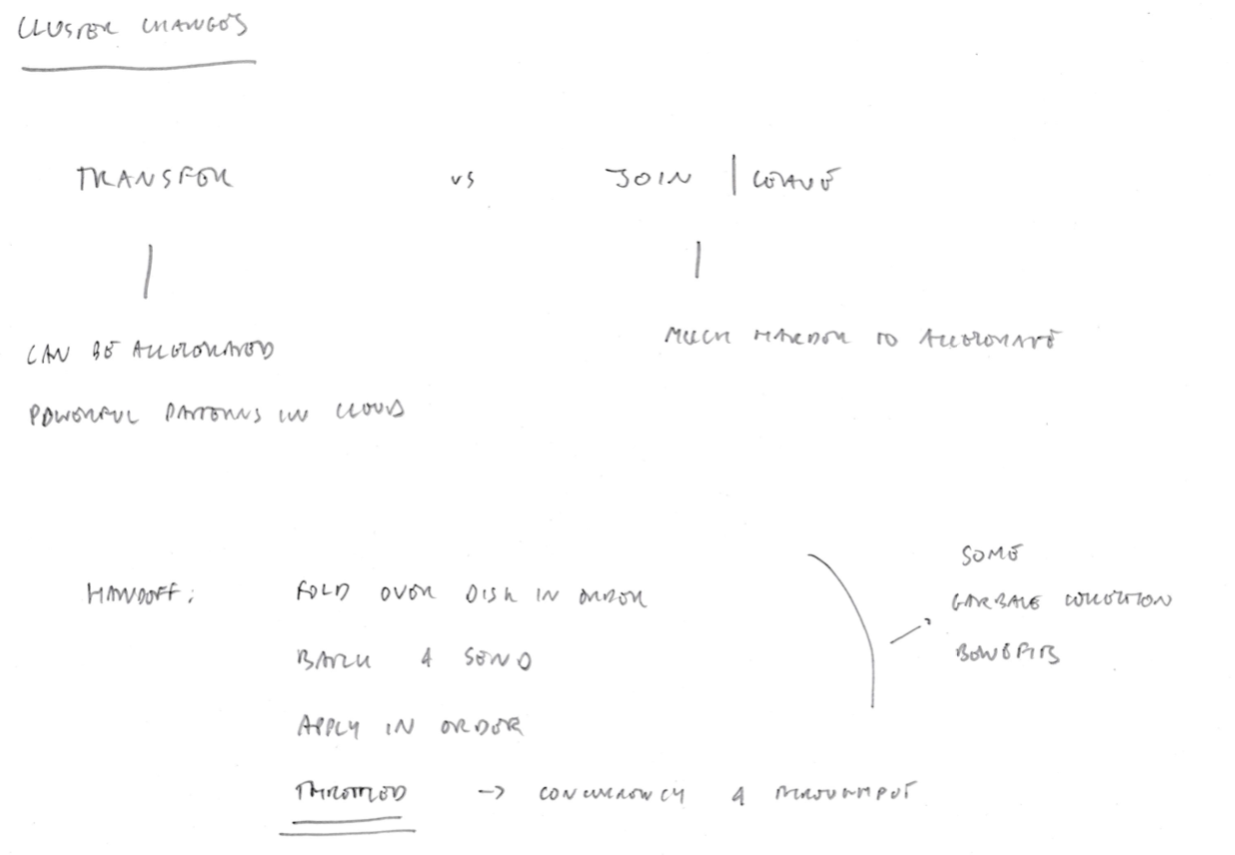 CLUSTER CHANGES
TRANSFER vs JOIN | LEAVE
CAN BE ACCELERATED
MUCH HARDER TO ACCELERATE
POWERFUL PATTERNS IN CLOUD
HANDOFF: FOLD OVER DISK IN ORDER
BATCH & SEND
APPLY IN ORDER
THROTTLED -> CONCURRENCY & THROUGHPUT
SOME
GARBAGE COLLECTION
BENEFITS